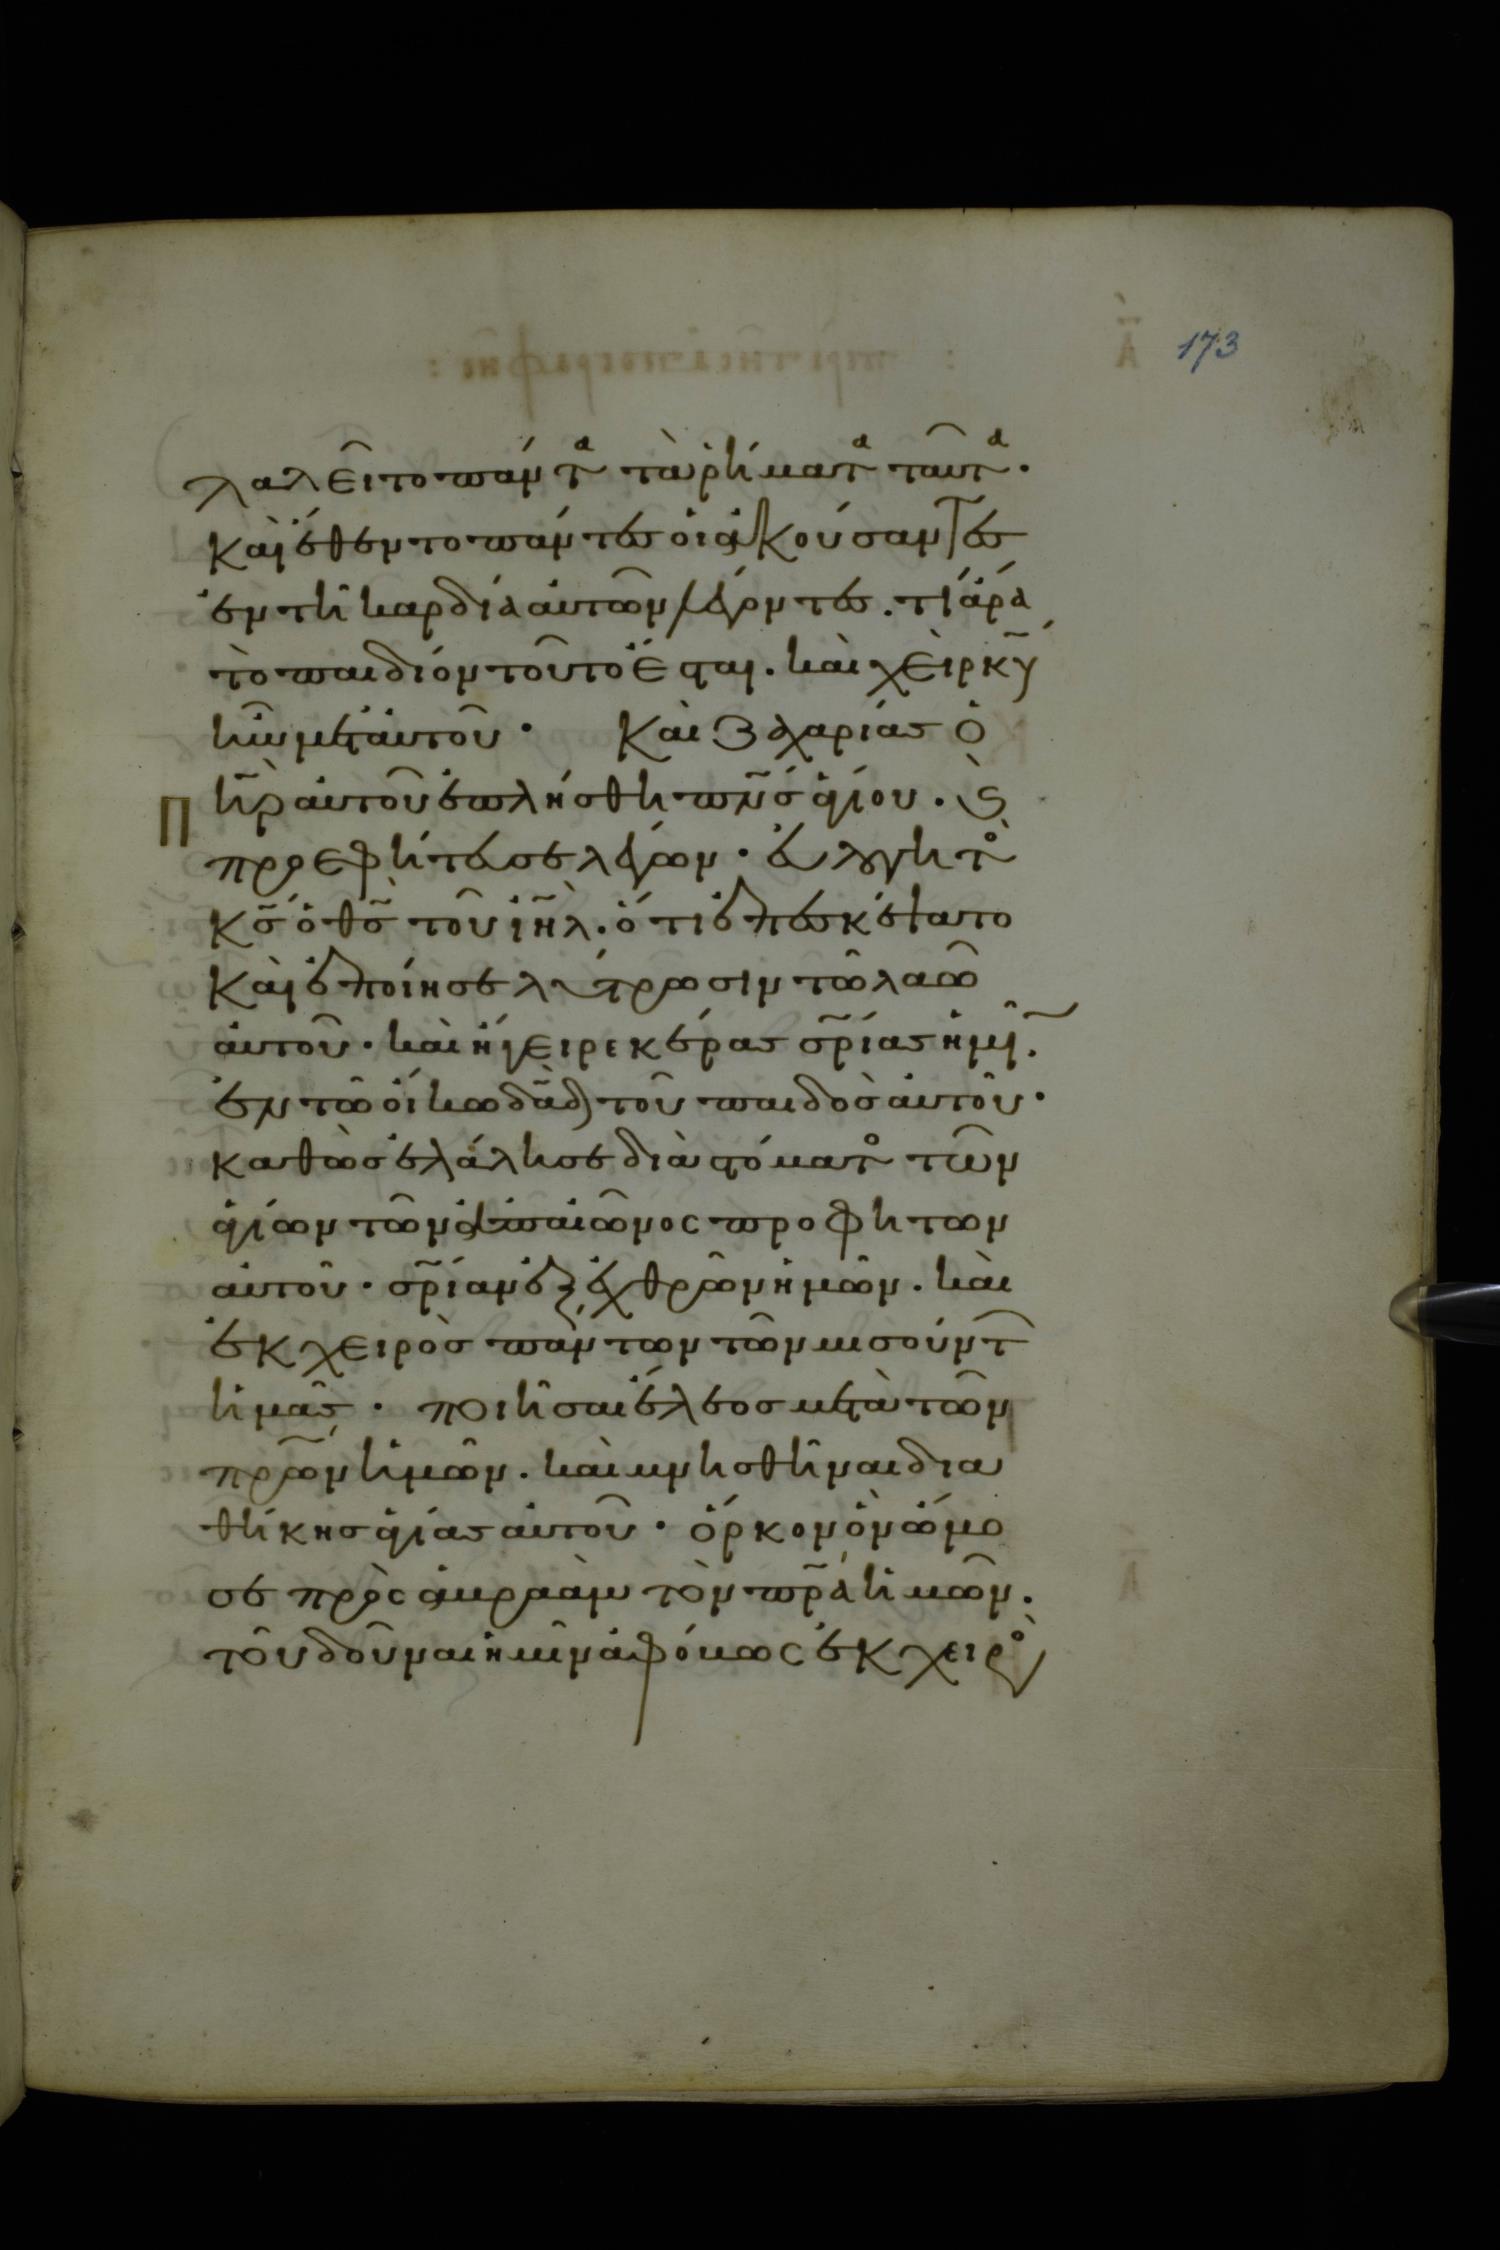 173
λαλεῖτο πάντα τὰ ῥήματα ταῦτα.
Καὶ ἔθεντο πάντες οἱ ἀκούσαντες
ἐν τῆ καρδία αὐτῶν λέγοντες. τί ἄρα
τὸ παιδίον τοῦτο ἔσται. καὶ χεὶρ κ̅υ̅
ἦν μετ' αὐτοῦ· Καὶ Ζαχαρίας ὁ
π̅η̅ρ̅ αὐτοῦ ἐπλήσθη π̅ν̅ς̅ ἁγίου. καὶ
προεφήτευσε λέγων· εὐλογητὸς
κ̅ς̅ ὁ θ̅ς̅ τοῦ ἰ̅η̅λ̅. ὅτι ἐπεσκέψατο
καὶ ἐποίησε λύτρωσιν τῶ λαῶ
αὐτοῦ· καὶ ἤγειρε κέρας σ̅ρ̅ί̅ας ἡμῖν.
ἐν τῶ οἴκω δ̅α̅δ̅ τοῦ παιδὸς αὐτοῦ·
καθὼς ἐλάλησε διὰ στόματος τῶν
ἁγίων τῶν ἀπ' αἰῶνος προφητῶν
αὐτοῦ· σ̅ρ̅ί̅αν ἐξ ἐχθρῶν ἡμῶν. καὶ
ἐκ χειρὸς πάντων τῶν μισούντων
ἡμᾶς· ποιῆσαι ἔλεος μετὰ τῶν
π̅ρ̅ω̅ν̅ ἡμῶν. καὶ μνησθῆναι δια
θήκης ἁγίας αὐτοῦ· ὅρκον ὃν ὤμο
σε πρὸς ἀβραὰμ τὸν π̅ρ̅α̅ ἡμῶν.
τοῦ δοῦναι ἡμῖν ἀφόβως ἐκ χειρὸς